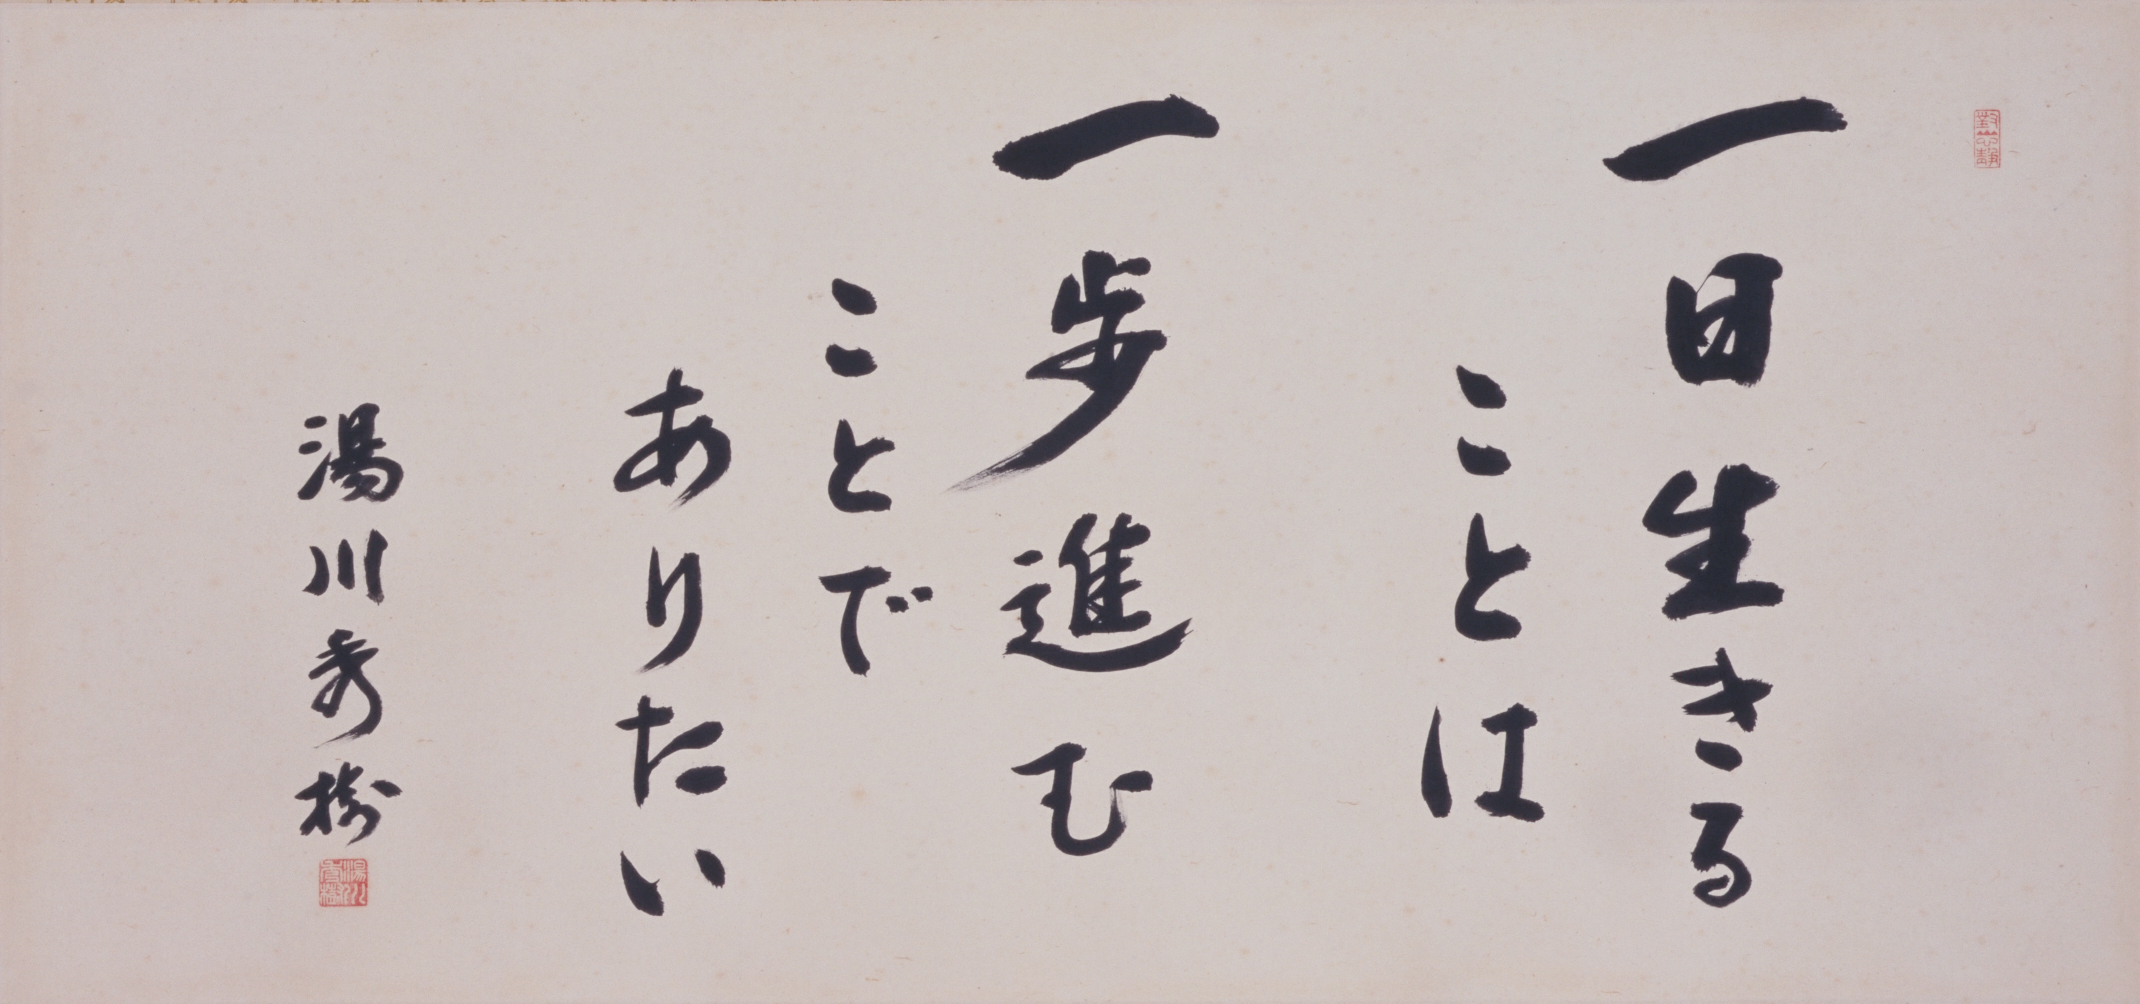 一日生きる
ことは
一歩進む
ことで
ありたい
湯川秀樹
湯川秀樹